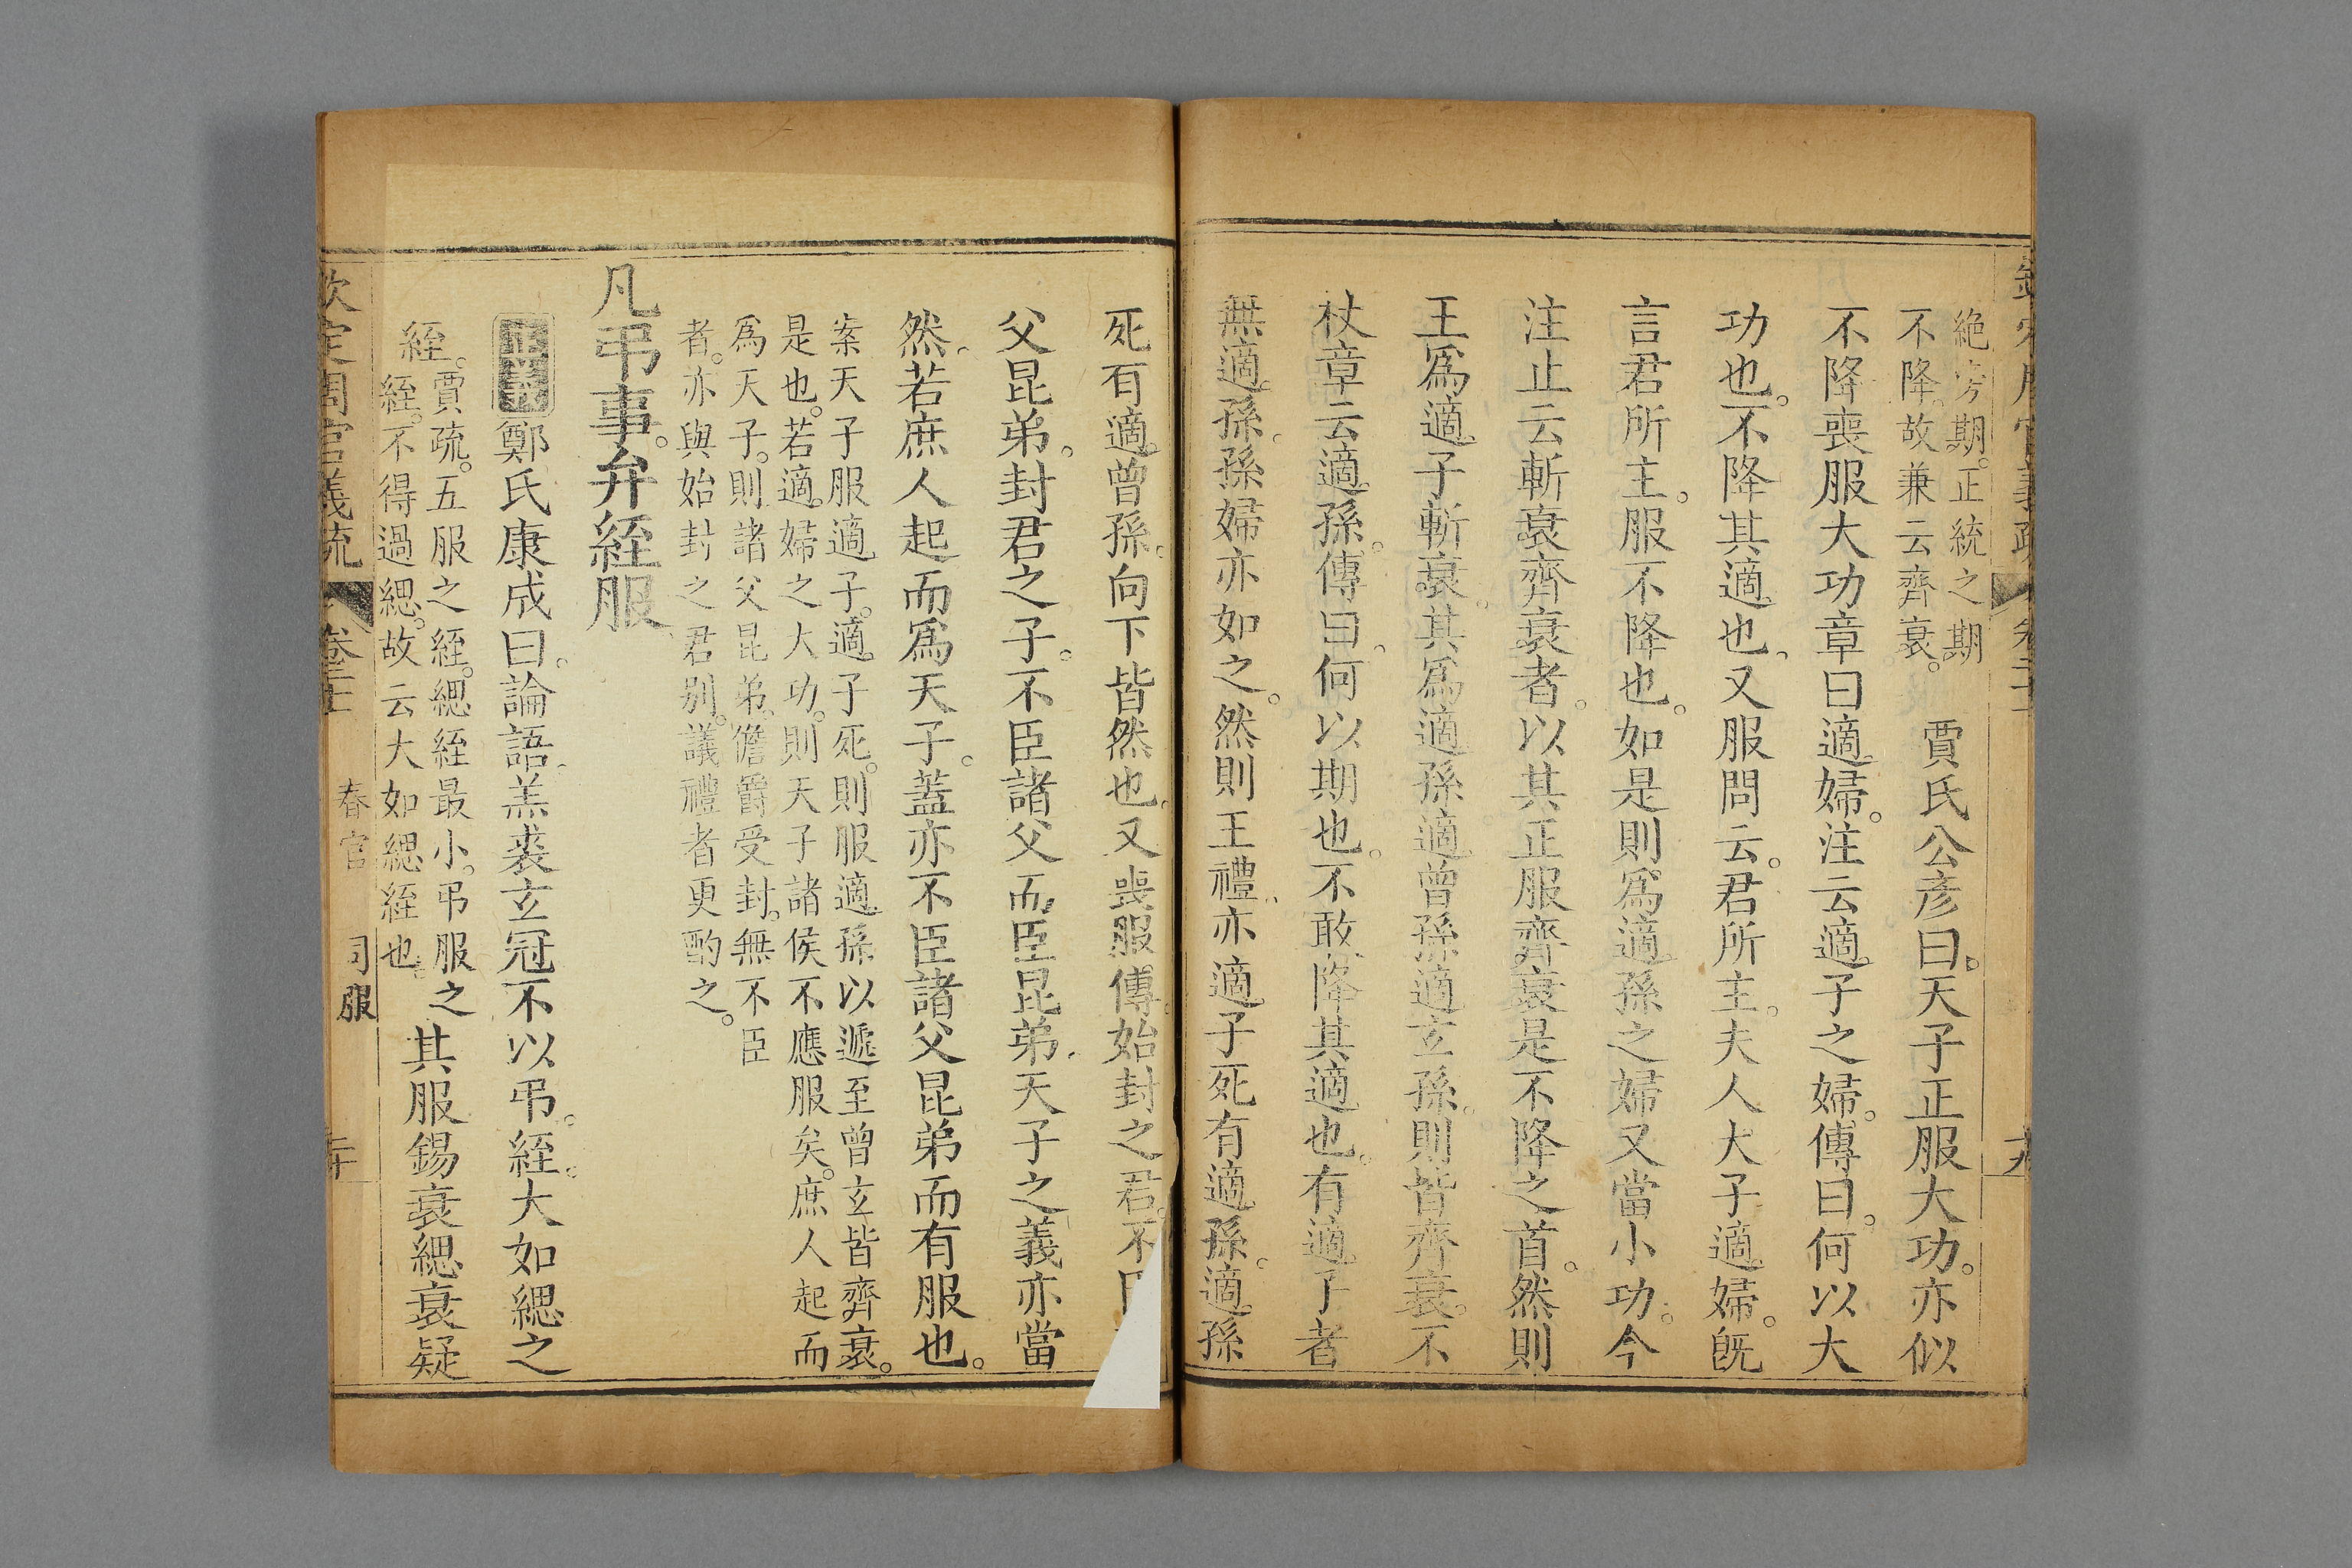 絶旁期。正統之期
不降。故兼云齊衰。
賈氏公彥曰。天子正服大功。亦似
不降喪服大功章曰適婦。注云適子之婦。傳曰。何以大
功也。不降其適也。又服問云。君所主。夫人大子適婦。旣
言君所主。服不降也。如是則爲適孫之婦又當小功。今
注止云斬衰齊衰者。以其正服齊衰是不降之首。然則
王爲適子斬衰。其爲適孫適曾孫適玄孫。則皆齊衰。不
杖章云適孫。傳曰。何以期也。不敢降其適也。有適子者
無適孫。孫婦亦如之。然則王禮亦適子死有適孫。適孫
死有適曾孫。向下皆然也。又喪服傳。始封之君。不
父昆弟。封君之子。不臣諸父而臣昆弟。天子之義亦當
然。若庶人起而爲天子。蓋亦不臣諸父昆弟而有服也。
案天子服適子。適子死。則服適孫以遞至曾玄皆齊衰。
是也。若適婦之大功。則天子諸侯不應服矣。庶人起而
爲天子。則諸父昆弟。儋爵受封。無不臣
者。亦與始封之君別。議禮者更酌之。
凡弔事。弁絰服
正義 鄭氏康成曰。論語羔裘玄冠不以弔。絰大如緦之
絰。
賈疏。五服之絰。緦絰最小。弔服之
絰。不得過緦。故云大如緦絰也。
其服錫衰緦衰疑
欽定周官義疏
卷二十
春官
司服
二十